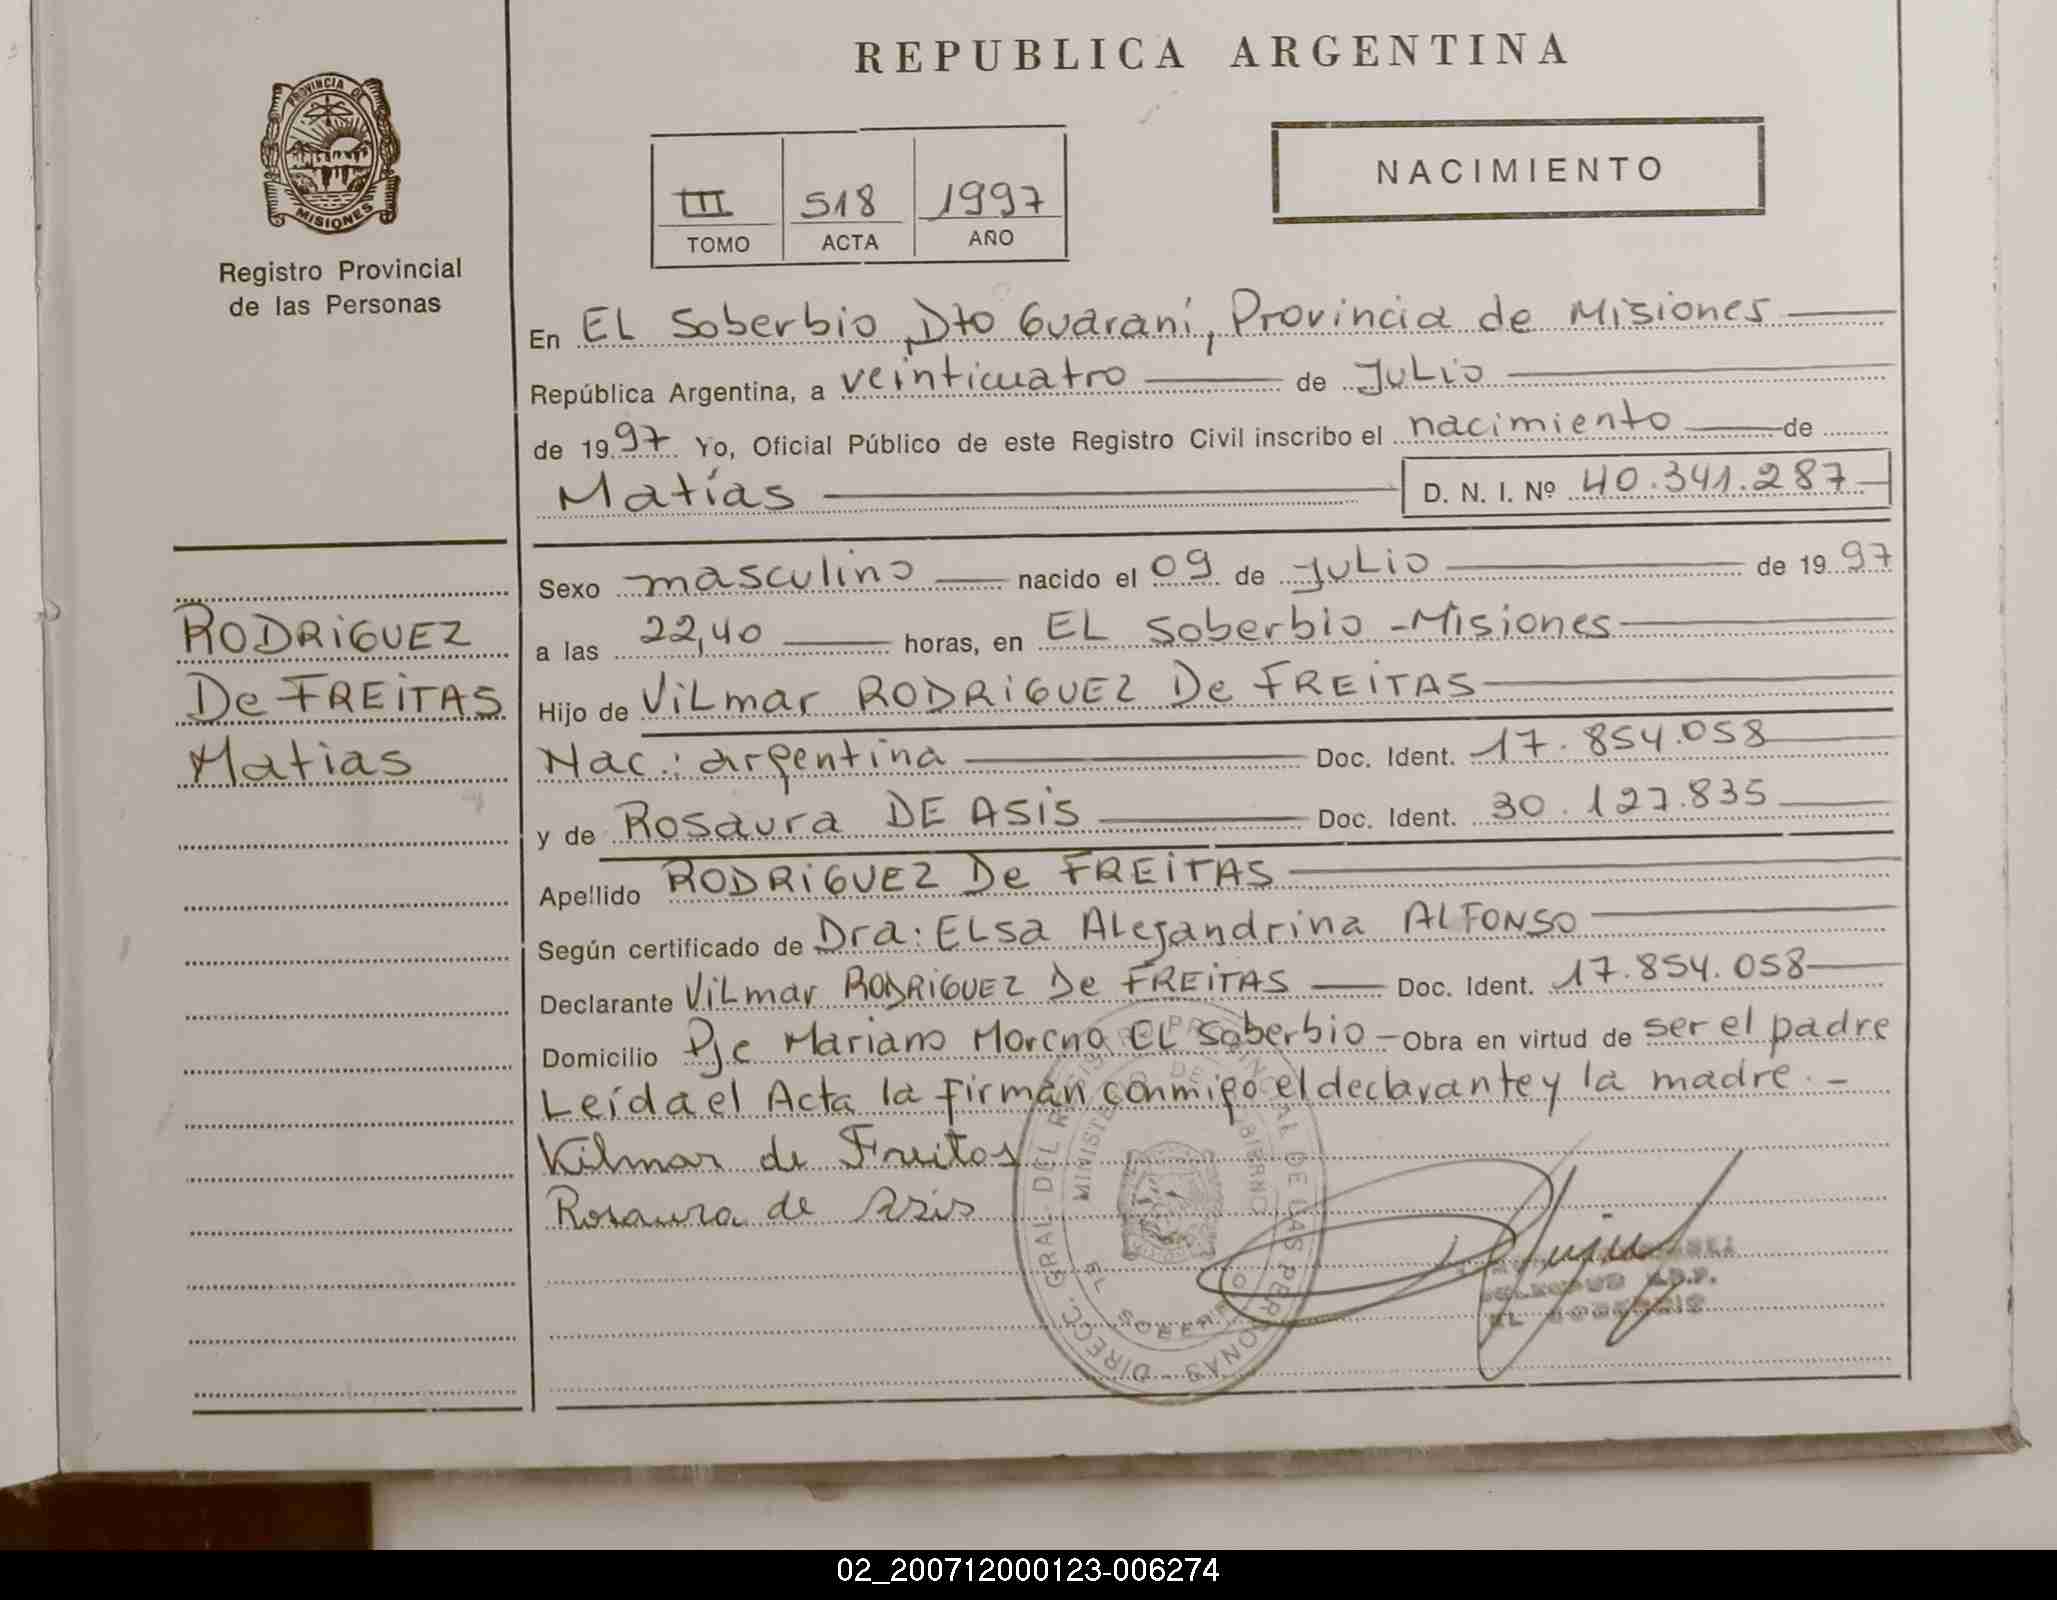 REPUBLICA ARGENTINA
PROVINCIA DE
MISIONES
Registro Provincial
de las Personas
III 518 1997
TOMO ACTA AÑO
NACIMIENTO
En EL Soberbio, Dto Guaraní, Provincia de Misiones
República Argentina, a veinticuatro de Julio
de 1997 Yo, Oficial Público de este Registro Civil inscribo el nacimiento de
Matías D. N. I. Nº 40.341.287
RODRIGUEZ
De FREITAS
Matias
Sexo masculino nacido el 09 de Julio de 1997
a las 22,40 horas, en EL Soberbio - Misiones
Hijo de Vilmar RODRIGUEZ De FREITAS
Nac.: argentina Doc. Ident. 17.854.058
y de Rosaura DE ASIS Doc. Ident. 30.127.835
Apellido RODRIGUEZ De FREITAS
Según certificado de Dra. ELsa Alejandrina ALFONSO
Declarante Vilmar RODRIGUEZ De FREITAS Doc. Ident. 17.854.058
Domicilio Pje Mariano Moreno EL Soberbio - Obra en virtud de ser el padre
Leída el Acta la firman conmigo el declarante y la madre. -
Vilmar de Freitas
Rosaura de Asis
DIRECC. GRAL. DEL REGISTRO PROVINCIAL DE LAS PERSONAS
MINISTERIO DE GOBIERNO
EL SOBERBIO
EL SOBERBIO
02_200712000123-006274